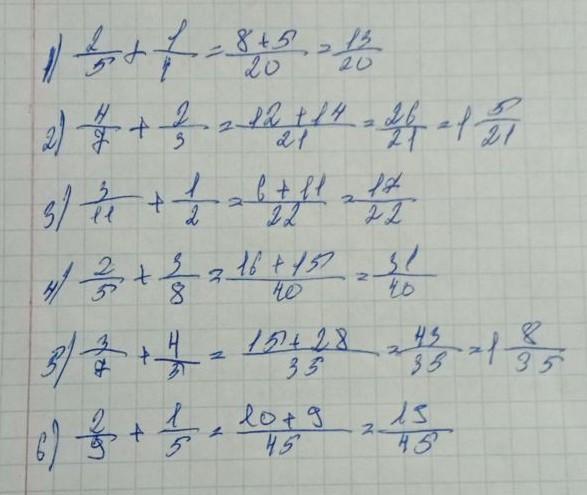 1) 2/5 + 1/4 = 8+5/20 = 13/20
2) 4/7 + 2/3 = 12+14/21 = 26/21 = 1 5/21
3) 3/11 + 1/2 = 6+11/22 = 17/22
4) 2/5 + 3/8 = 16+15/40 = 31/40
5) 3/7 + 4/5 = 15+28/35 = 43/35 = 1 8/35
6) 2/9 + 1/5 = 10+9/45 = 19/45